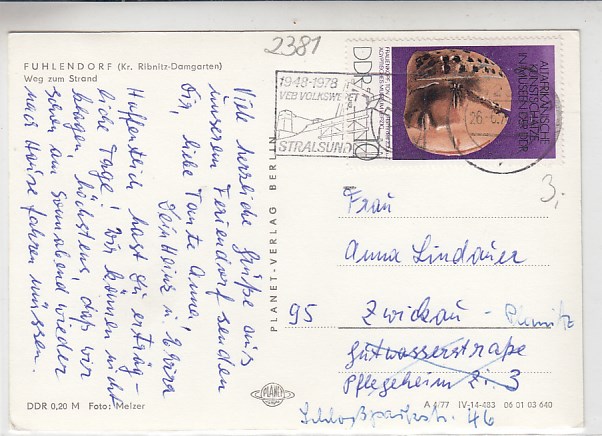 2381
FUHLENDORF (Kr. Ribnitz-Damgarten)
Weg zum Strand
Viele herzliche Grüße aus
unserem Feriendorf senden
Dir, liebe Tante Anna!
Dein Heinz u. Erika
Hoffentlich hast Du erträg-
liche Tage! Wir können nicht
klagen, höchstens, daß wir
schon am Sonnabend wieder
nach Hause fahren müssen.
DDR 0,20 M Foto: Melzer
PLANET-VERLAG BERLIN
PLANET
1948-1978
VEB VOLKSWERFT
STRALSUND
DDR
10
ALTAFRIKANISCHE
KUNSTSCHÄTZE
IN MUSEEN DER DDR
3,-
Frau
Anna Lindauer
95 Zwickau - Planitz
Gutwasserstraße
Pflegeheim Zi. 3
Schloßparkstr. 46
A 4/77 IV-14-483 06 01 03 640